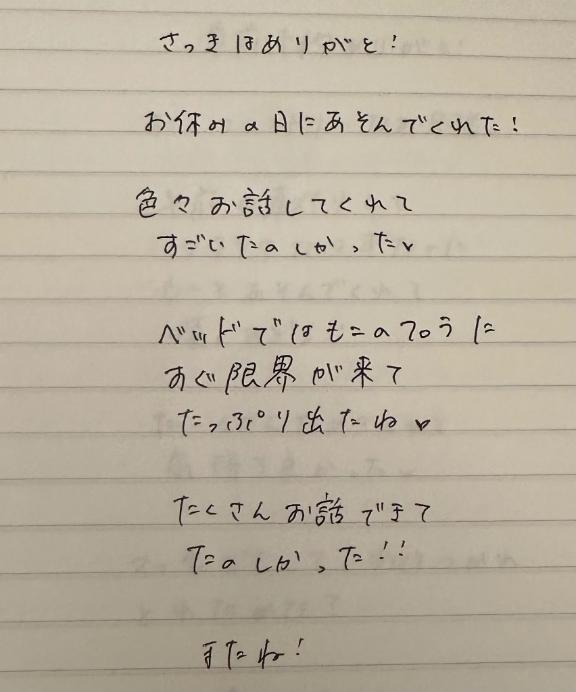 さっきはありがと!
お休みの日にあそんでくれた!
色々お話してくれて
すごいたのしかった♥
ベッドではもこのテロうに
すぐ限界が来て
たっぷり出たね♥
たくさんお話できて
たのしかった!!
またね!